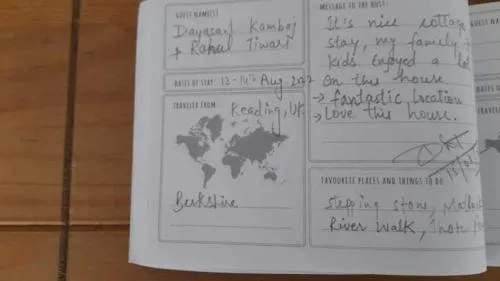 GUEST NAME(S)
Dayasant Kamboj
+ Rahul Tiwari
DATES OF STAY 12-14th Aug
TRAVELED FROM Reading, UK
Berkshire
MESSAGE TO THE HOST:
It's nice cottage
stay, my family +
kids enjoyed a lot
on this house.
→ fantastic location
→ Love this house.
FAVOURITE PLACES AND THINGS TO DO
Stepping stone,
River walk,
GUEST NA
DATES O
TRAVELE